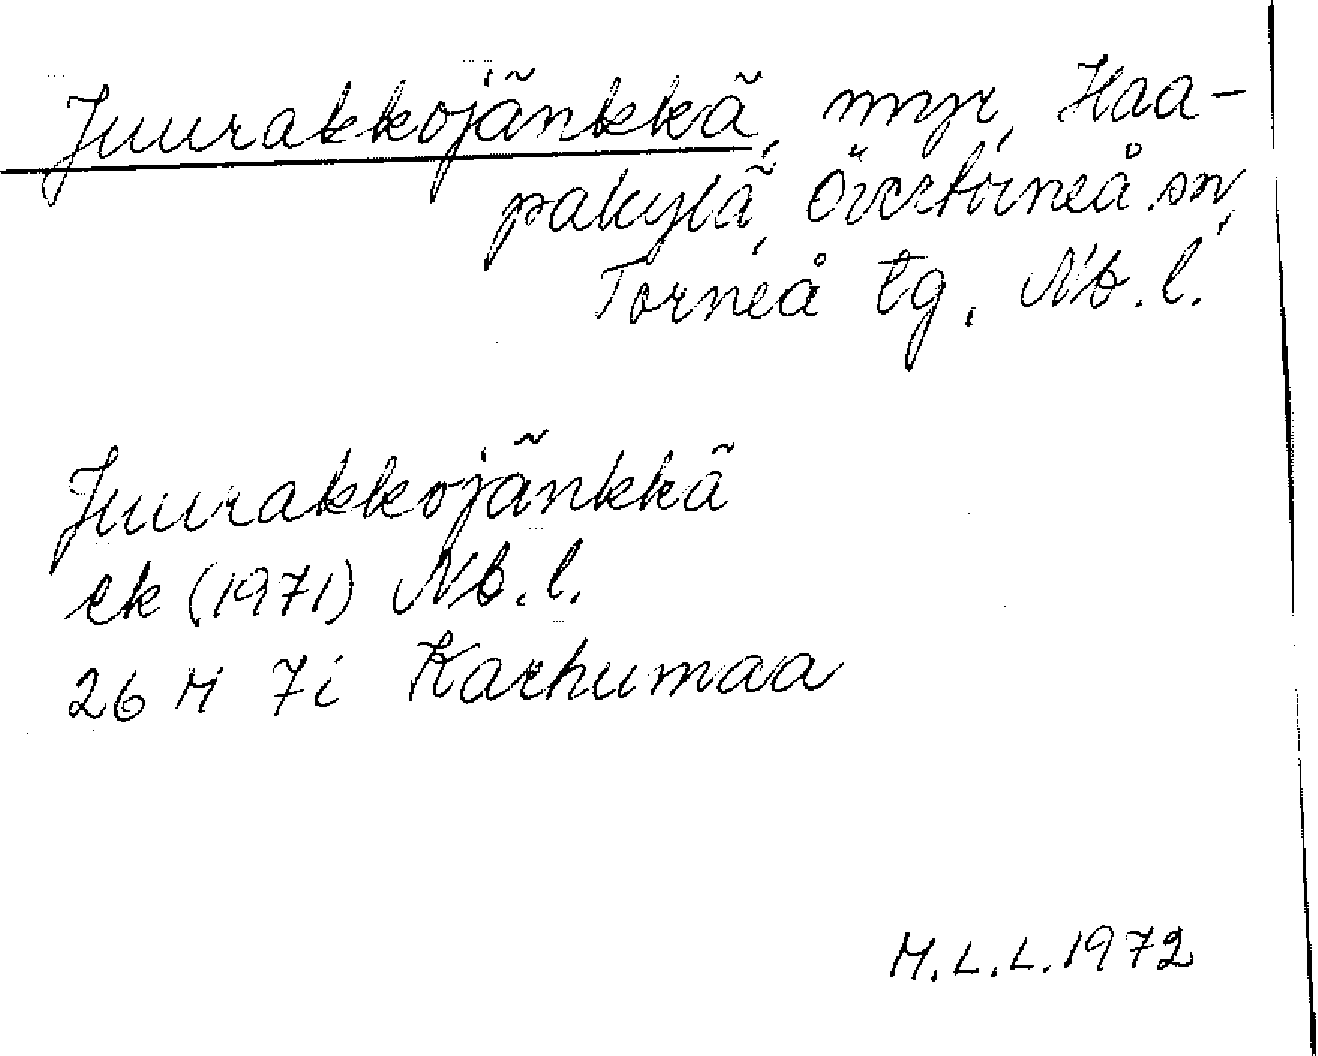 Juurakkojänkkä, myr, Haa-
pakylä, Övertorneå sn,
Torneå tg, Nb. l.
Juurakkojänkkä
ek (1971) Nb. l.
26 M 7i Karhumaa
M.L.L. 1972